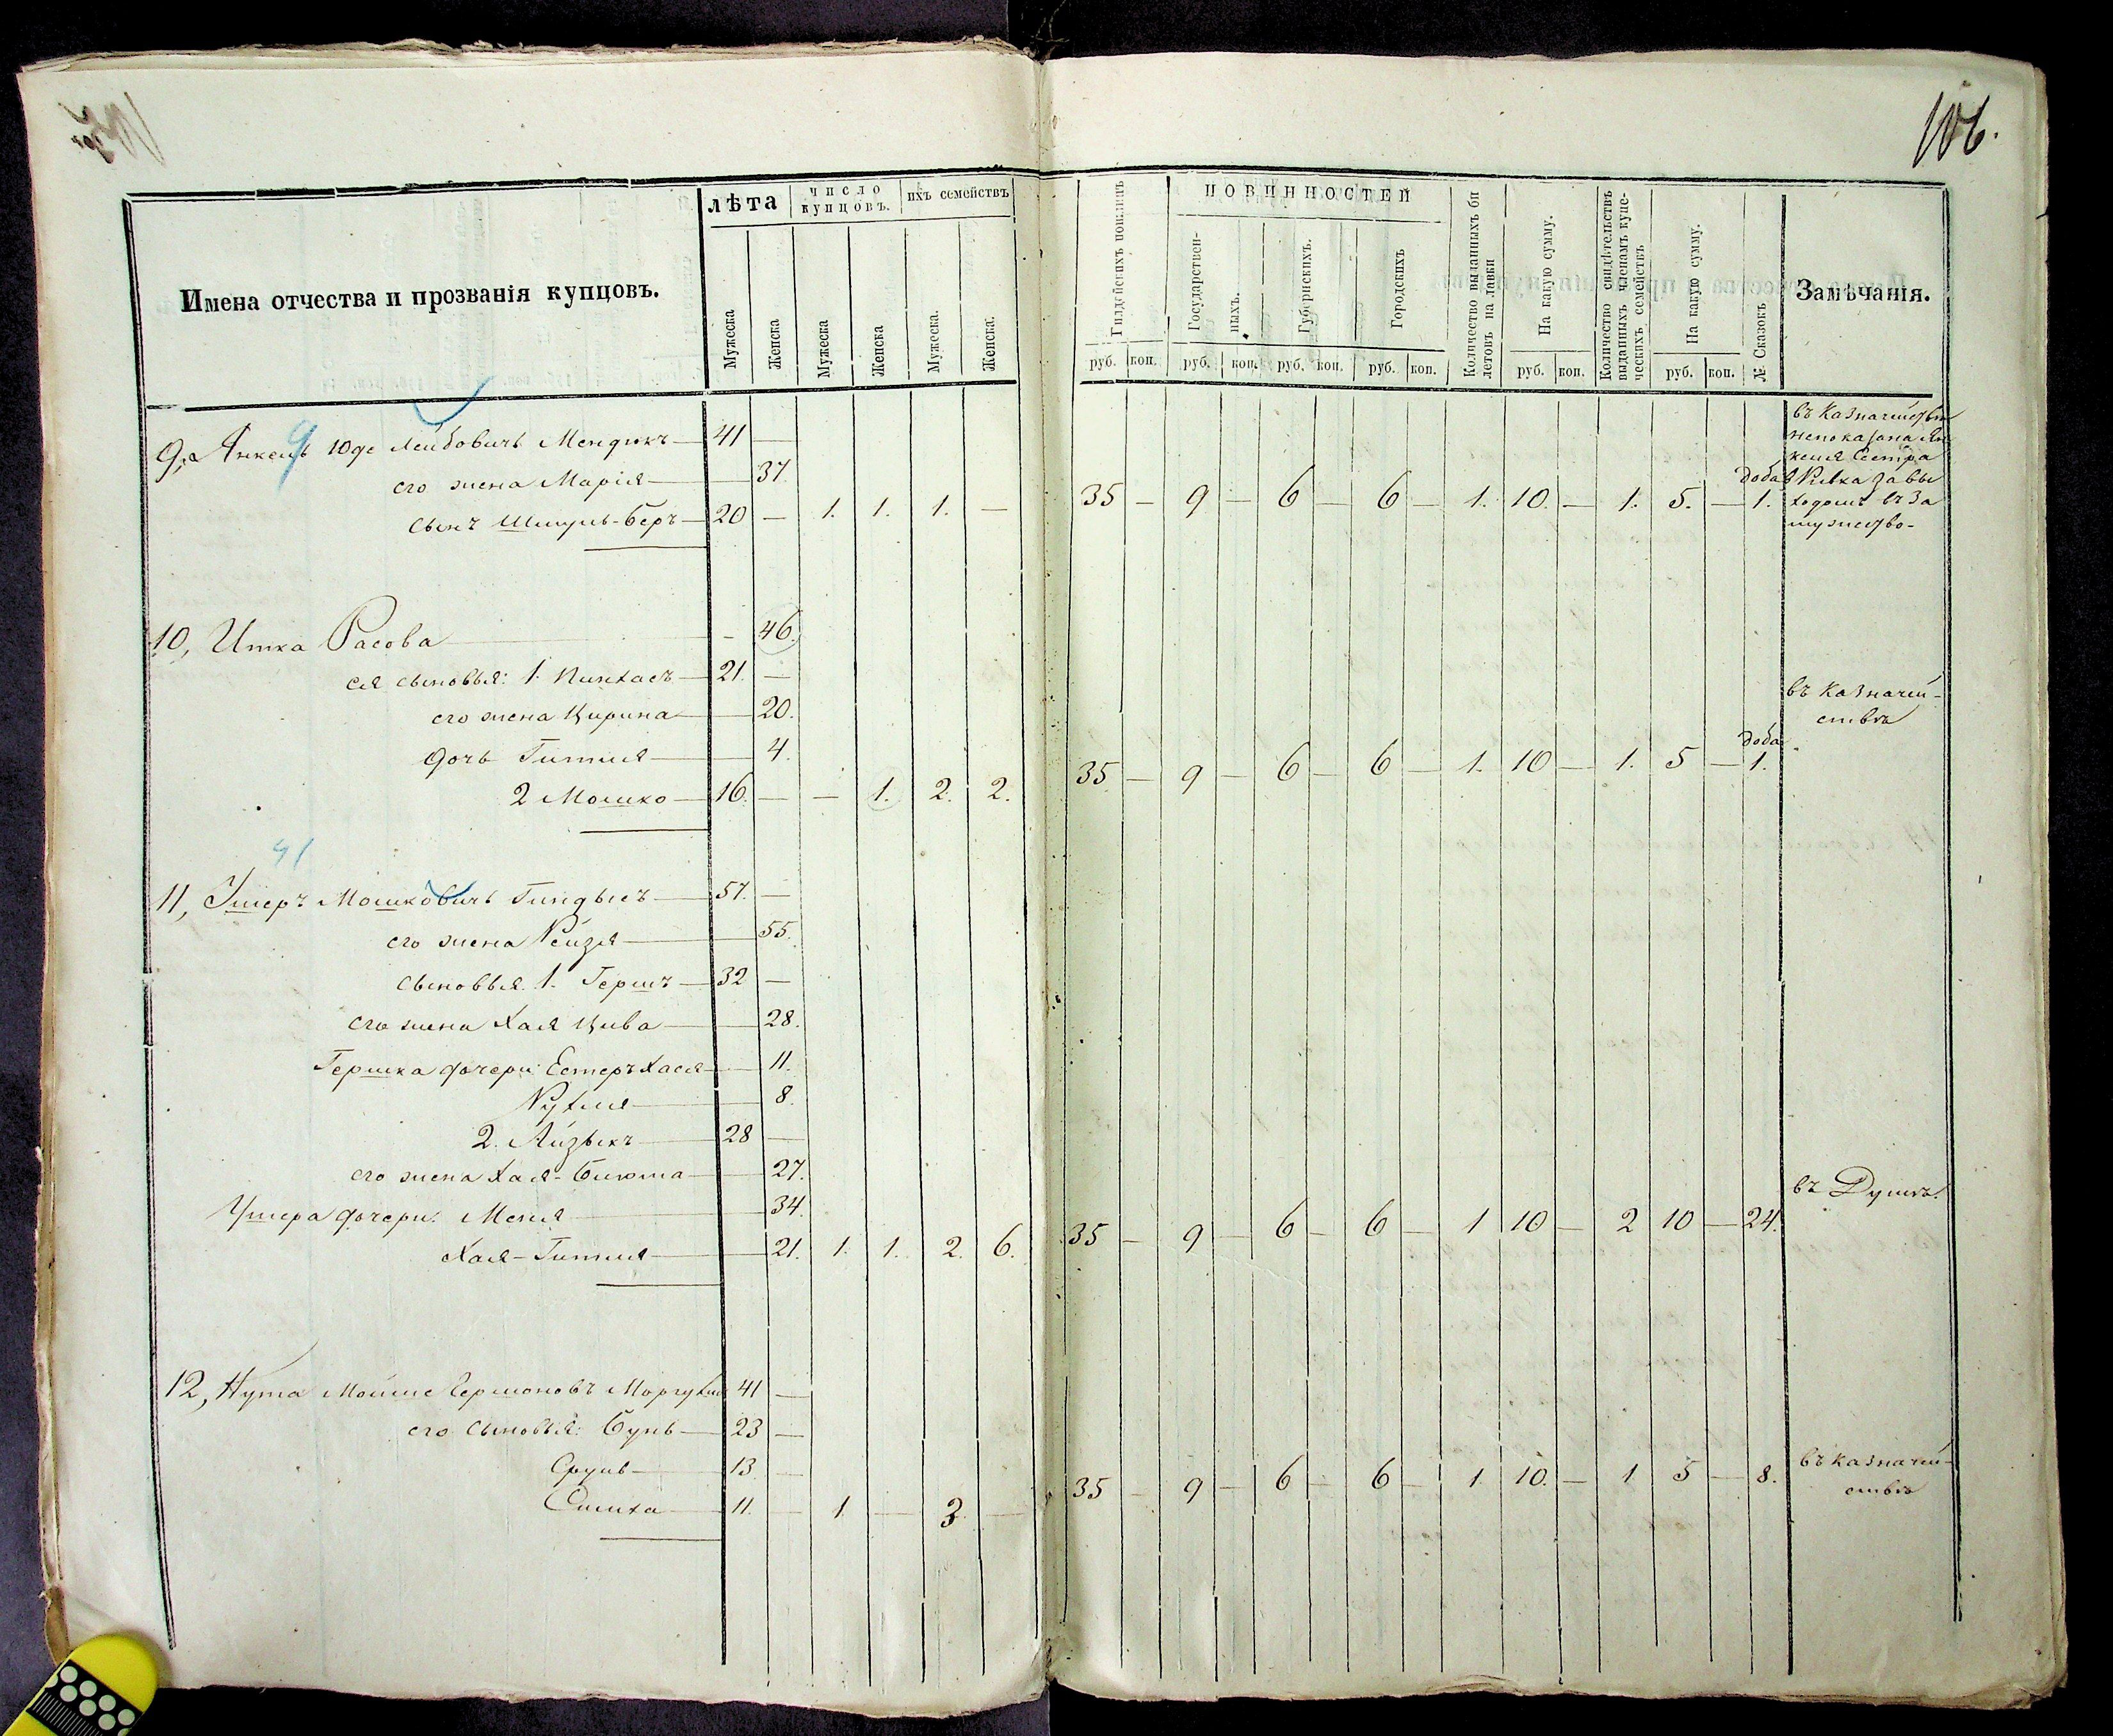 106.
Имена отчества и прозванія купцовъ.
лѣта
число купцовъ.
ихъ семействъ
Мужеска
Женска
Мужеска
Женска
Мужеска.
Женска.
Гильдейскихъ пошлинъ
ПОВИННОСТЕЙ
Государствен-
ныхъ.
Губернскихъ.
Городскихъ
Количество выданныхъ би
летовъ на лавки
На какую сумму.
Количество свидѣтельствъ
выданныхъ членамъ купе-
ческихъ семействъ
На какую сумму.
№ Сказокъ
Замѣчанія.
руб. коп. руб. коп. руб. коп. руб. коп. руб. коп. руб. коп.
9, Янкель Юде Лейбовичъ Мендюкъ 41 —
9
его жена Марія — 37.
сынъ Шмуль-Беръ 20 — 1. 1. 1. — 35 — 9 — 6 — 6 — 1. 10. — 1. 5. — 1.
въ Казначействѣ
непоказана Ян
келя Сестра
Ривка за вы
ходомъ въ За
мужество-
10, Итка Расова — 46.
ея сыновья: 1. Пинхасъ 21. —
его жена Цирина — 20.
дочь Гитля — 4.
2 Мошко 16. — — 1. 2. 2. 35 — 9 — 6 — 6 — 1. 10 — 1. 5 — 1.
въ Казначей-
ствѣ
11, Ушеръ Мошковичъ Гиндысъ 57. —
его жена Рейзя — 55.
сыновья. 1. Гершъ 32 —
его жена Хая Цива — 28.
Гершка дочери: Естеръ Хася — 11.
Рухля — 8.
2. Айзыкъ 28 —
его жена Хая-Бинюма — 27.
Ушера дочери: Меня — 34.
Хая-Гитля — 21. 1. 1. 2. 6. 35 — 9 — 6 — 6 — 1 10 — 2 10 — 24.
въ Думѣ.
12, Нута Мойше Лермоновъ 41 —
его сыновья: Бунь 23 —
Сруль 13. —
Симха 11. — 1 — 3 — 35 — 9 — 6 — 6 — 1. 10. — 1 5 — 8.
въ казначей-
ствѣ